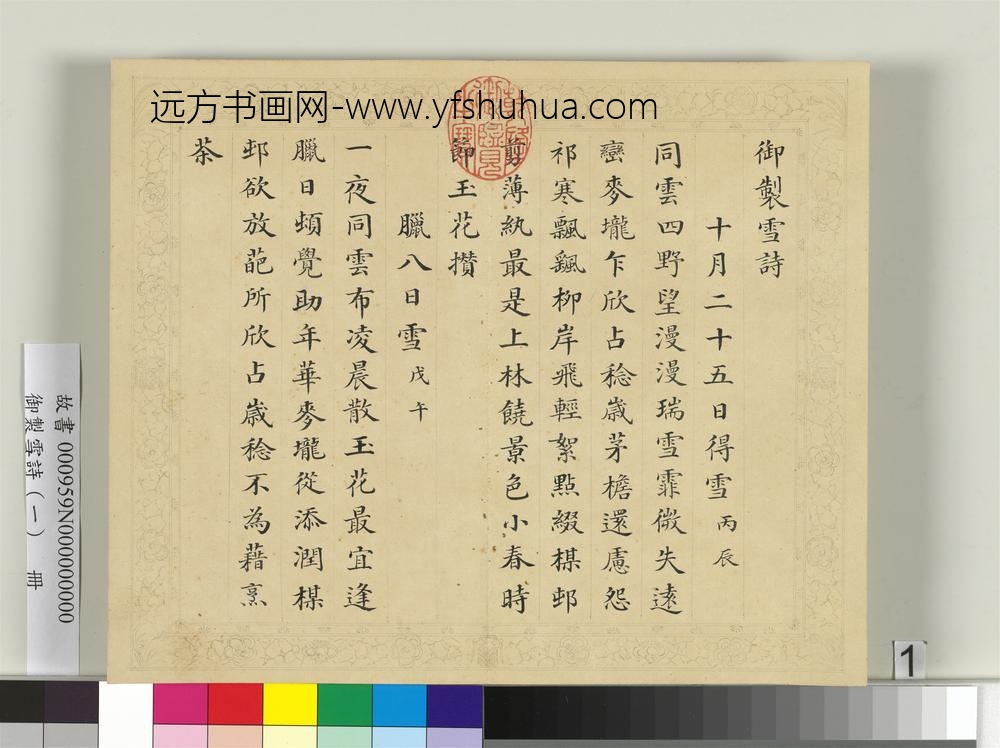 远方书画网-www.yfshuhua.com
御製雪詩
十月二十五日得雪丙辰
同雲四野望漫漫瑞雪霏微失遠
巒麥壠乍欣占稔歲茅檐還慮怨
祁寒飄颻柳岸飛輕絮點綴楳邨
剪薄紈最是上林饒景色小春時
節玉花攢
臘八日雪戊午
一夜同雲布凌晨散玉花最宜逢
臘日頓覺助年華麥壠從添潤楳
邨欲放葩所欣占歲稔不為藉烹
茶
故書 000959N000000000
御製雪詩(一) 冊
1